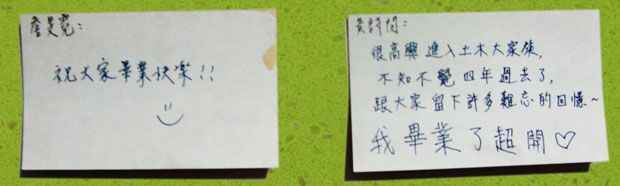 祝大家畢業快樂!!
很高興進入土木大家族,
不知不覺四年過去了,
跟大家留下許多難忘的回憶~
我畢業了超開♡